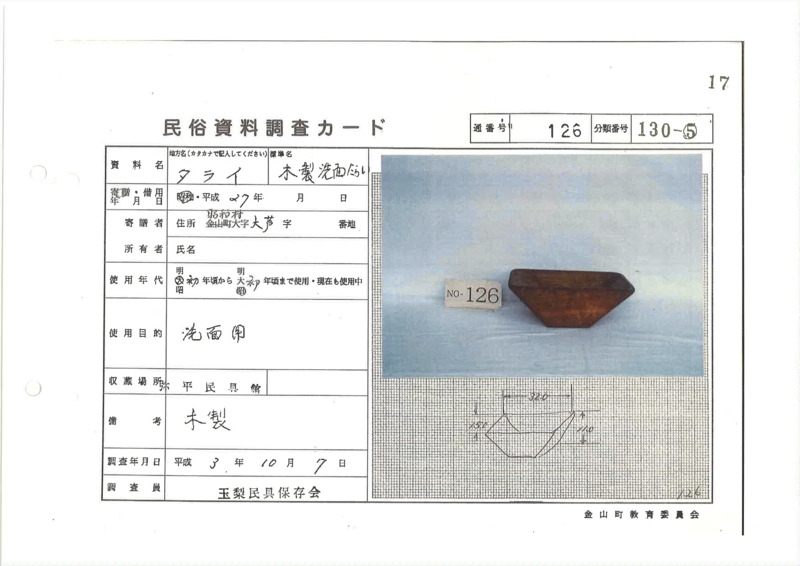 17
民俗資料調査カード
通番号 126 分類番号 130-⑤
資料名 地方名(カタカナで記入してください) タライ 標準名 木製洗面たらい
寄贈・借用年月日 昭和・平成 27年 月 日
寄贈者 住所 昭和村 金山町大字 大芦 字 番地
所有者 氏名
使用年代 明大昭 初 年頃から 明大昭 初 年頃まで使用・現在も使用中
使用目的 洗面用
収蔵場所 弥平民具館
備考 木製
調査年月日 平成 3年 10月 7日
調査員 玉梨民具保存会
NO. 126
320
150
110
126
金山町教育委員会